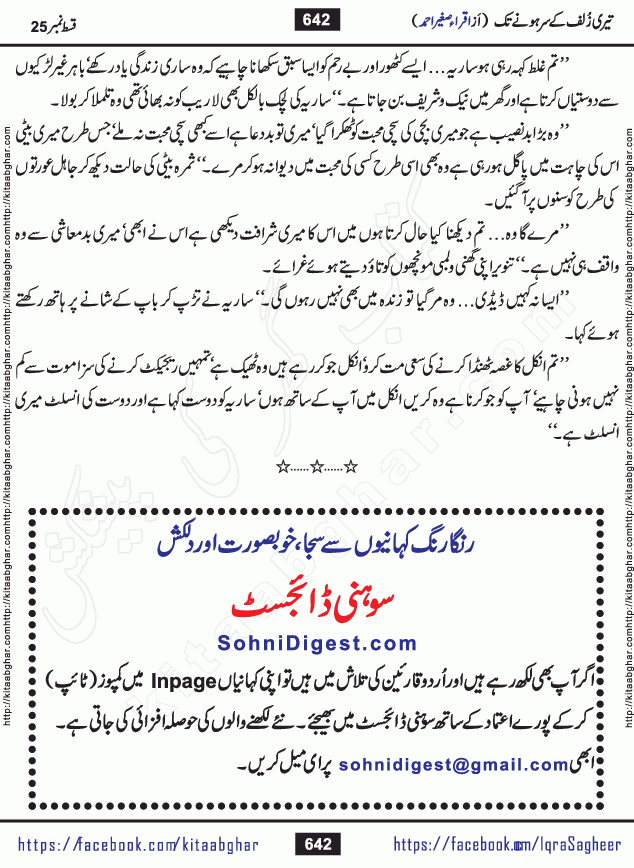 تیری زُلف کے سر ہونے تک (از اقراء صغیر احمد) 642 قسط نمبر 25
’’تم غلط کہہ رہی ہو ساریہ... ایسے کٹھور اور بے رحم کو ایسا سبق سکھانا چاہیے کہ وہ ساری زندگی یاد رکھے‘ باہر غیر لڑکیوں
سے دوستیاں کرتا ہے اور گھر میں نیک و شریف بن جاتا ہے۔‘‘ ساریہ کی لچک بالکل بھی لاریب کو نہ بھائی تھی وہ تلملا کر بولا۔
’’وہ بڑا بدنصیب ہے جو میری بچی کی سچی محبت کو ٹھکرا گیا‘ میری تو بددعا ہے اسے کبھی سچی محبت نہ ملے‘ جس طرح میری بیٹی
اس کی چاہت میں پاگل ہو رہی ہے وہ بھی اسی طرح کسی کی محبت میں دیوانہ ہو کر مرے۔‘‘ ثمرہ بیٹی کی حالت دیکھ کر جاہل عورتوں
کی طرح کوسنوں پر آ گئیں۔
’’مرے گا وہ... تم دیکھنا کیا حال کرتا ہوں میں اس کا میری شرافت دیکھی ہے اس نے ابھی‘ میری بدمعاشی سے وہ
واقف ہی نہیں ہے۔‘‘ تنویر اپنی گھنی و لمبی مونچھوں کو تاؤ دیتے ہوئے غرائے۔
’’ایسا نہ کہیں ڈیڈی... وہ مر گیا تو زندہ میں بھی نہیں رہوں گی۔‘‘ ساریہ نے تڑپ کر باپ کے شانے پر ہاتھ رکھتے
ہوئے کہا۔
’’تم انکل کا غصہ ٹھنڈا کرنے کی سعی مت کرو‘ انکل جو کر رہے ہیں وہ ٹھیک ہے‘ تمہیں ریجیکٹ کرنے کی سزا موت سے کم
نہیں ہونی چاہیے‘ آپ کو جو کرنا ہے وہ کریں انکل میں آپ کے ساتھ ہوں‘ ساریہ کو دوست کہا ہے اور دوست کی انسلٹ میری
انسلٹ ہے۔‘‘
☆......☆......☆
رنگا رنگ کہانیوں سے سجا، خوبصورت اور دلکش
سوہنی ڈائجسٹ
SohniDigest.com
اگر آپ بھی لکھ رہے ہیں اور اُردو قارئین کی تلاش میں ہیں تو اپنی کہانیاں Inpage میں کمپوز (ٹائپ)
کر کے پورے اعتماد کے ساتھ سوہنی ڈائجسٹ میں بھیجئے۔ نئے لکھنے والوں کی حوصلہ افزائی کی جاتی ہے۔
ابھی sohnidigest@gmail.com پر ای میل کریں۔
http://kitaabghar.com http://kitaabghar.com http://kitaabghar.com http://kitaabghar.com http://kitaabghar.com
http://kitaabghar.com http://kitaabghar.com http://kitaabghar.com http://kitaabghar.com http://kitaabghar.com
کتاب گھر کی پیشکش
kitaabghar.com
https://facebook.com/kitaabghar 642 https://facebook.com/IqraSagheer